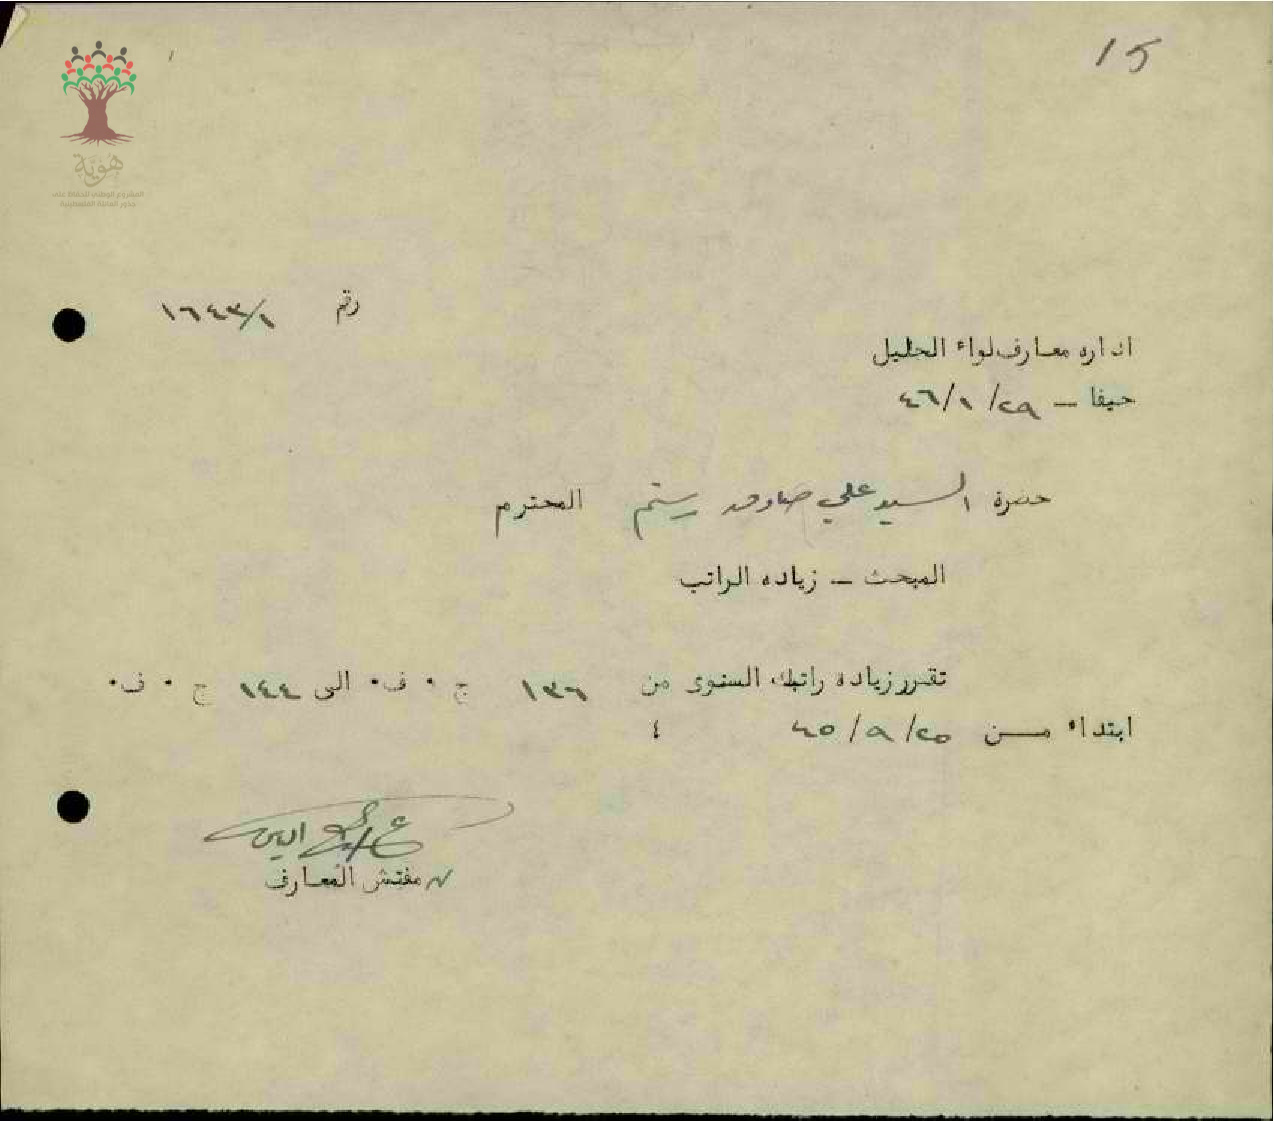 15
هوية
المشروع الوطني للحفاظ على
جذور العائلة الفلسطينية
رقم ١٦٤٣/١
اداره معارف لواء الجليل
حيفا – ٢٩/ ١/ ٤٦
حضرة السيد علي صادق رستم المحترم
المبحث – زياده الراتب
تقرر زياده راتبك السنوى من ١٣٦ ج ٠ ف٠ الى ١٤٤ ج ٠ ف٠
ابتداء من ٢٥/ ٩/ ٤٥ ؛
مفتش المعارف